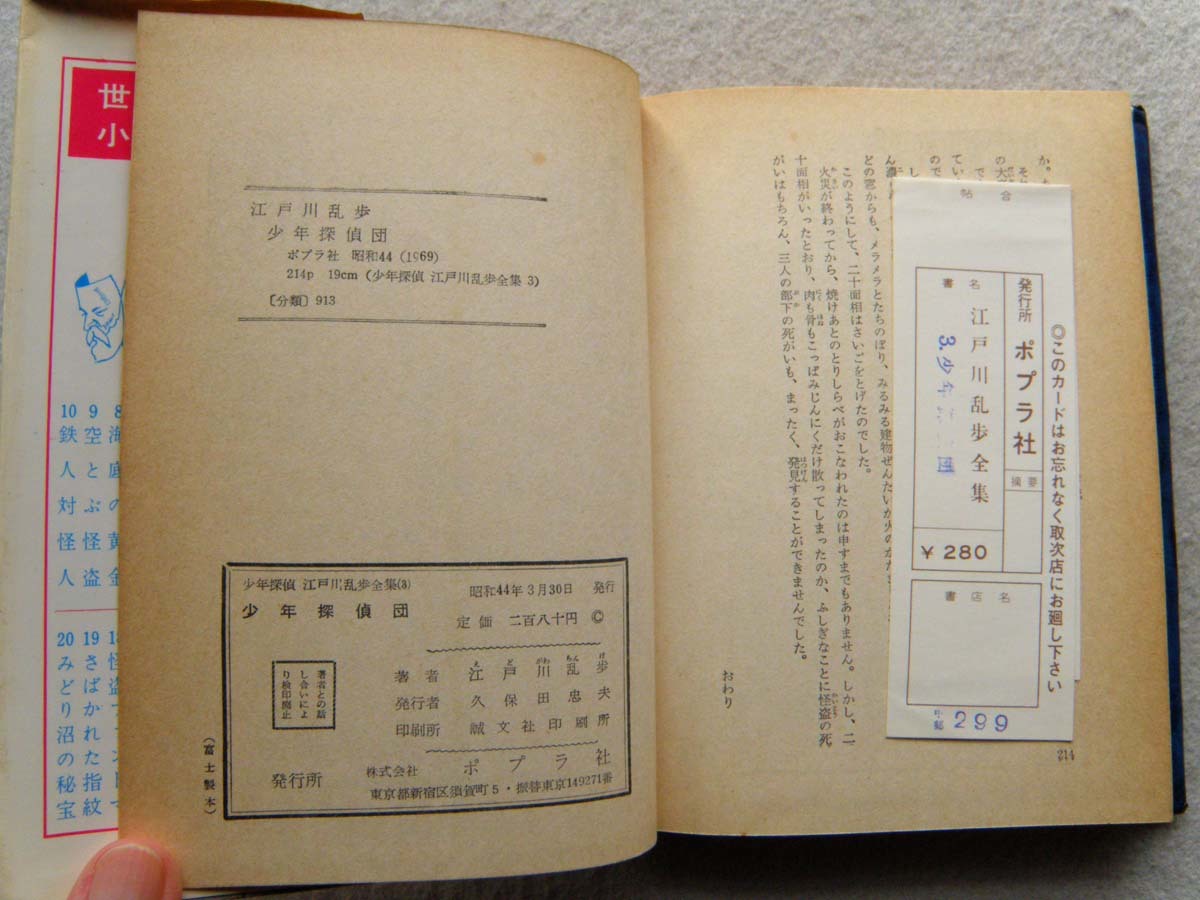 江戸川乱歩
少年探偵団
ポプラ社 昭和44 (1969)
214p 19cm (少年探偵 江戸川乱歩全集 3)
〔分類〕913
少年探偵 江戸川乱歩全集(3)
少年探偵団
昭和44年3月30日 発行
定価 二百八十円 ©
著者との話
し合いによ
り検印廃止
著者 江戸川乱歩
発行者 久保田忠夫
印刷所 誠文社印刷所
発行所 株式会社 ポプラ社
東京都新宿区須賀町5・振替東京149271番
(富士製本)
世
小
10 鉄人対怪人
9 空とぶ怪盗
8 海底の黄金
20 みどり沼の秘宝
19 さばかれた指紋
どの窓からも、メラメラとたちのぼり、みるみる建物ぜんたいが火のかたま
このようにして、二十面相はさいごをとげたのでした。
火災が終わってから、焼けあとのとりしらべがおこなわれたのは申すまでもありません。しかし、二
十面相がいったとおり、肉も骨もこっぱみじんにくだけ散ってしまったのか、ふしぎなことに怪盗の死
がいはもちろん、三人の部下の死がいも、まったく、発見することができませんでした。
おわり
214
◎このカードはお忘れなく取次店にお廻し下さい
発行所 ポプラ社
摘要
書名
江戸川乱歩全集
3.少年
団
¥280
書店名
299